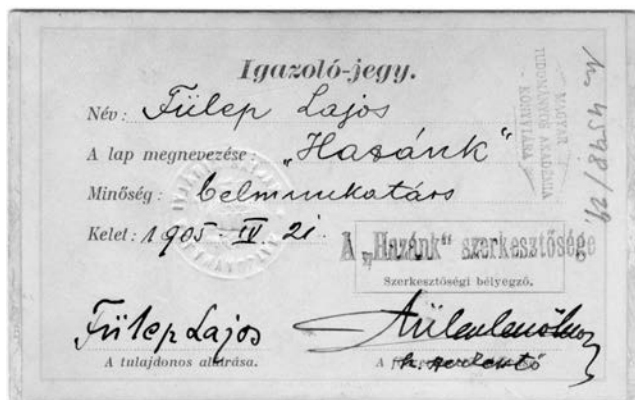 Igazoló-jegy.
Név: Fülep Lajos
A lap megnevezése: „Hazánk"
Minőség: belmunkatárs
Kelet: 1905 IV. 21.
A „Hazánk" szerkesztősége
Szerkesztőségi bélyegző.
Fülep Lajos
A tulajdonos aláírása.
A
h. szerkesztő
MAGYAR
TUDOMÁNYOS AKADÉMIA
KÖNYVTÁRA
4598/29.